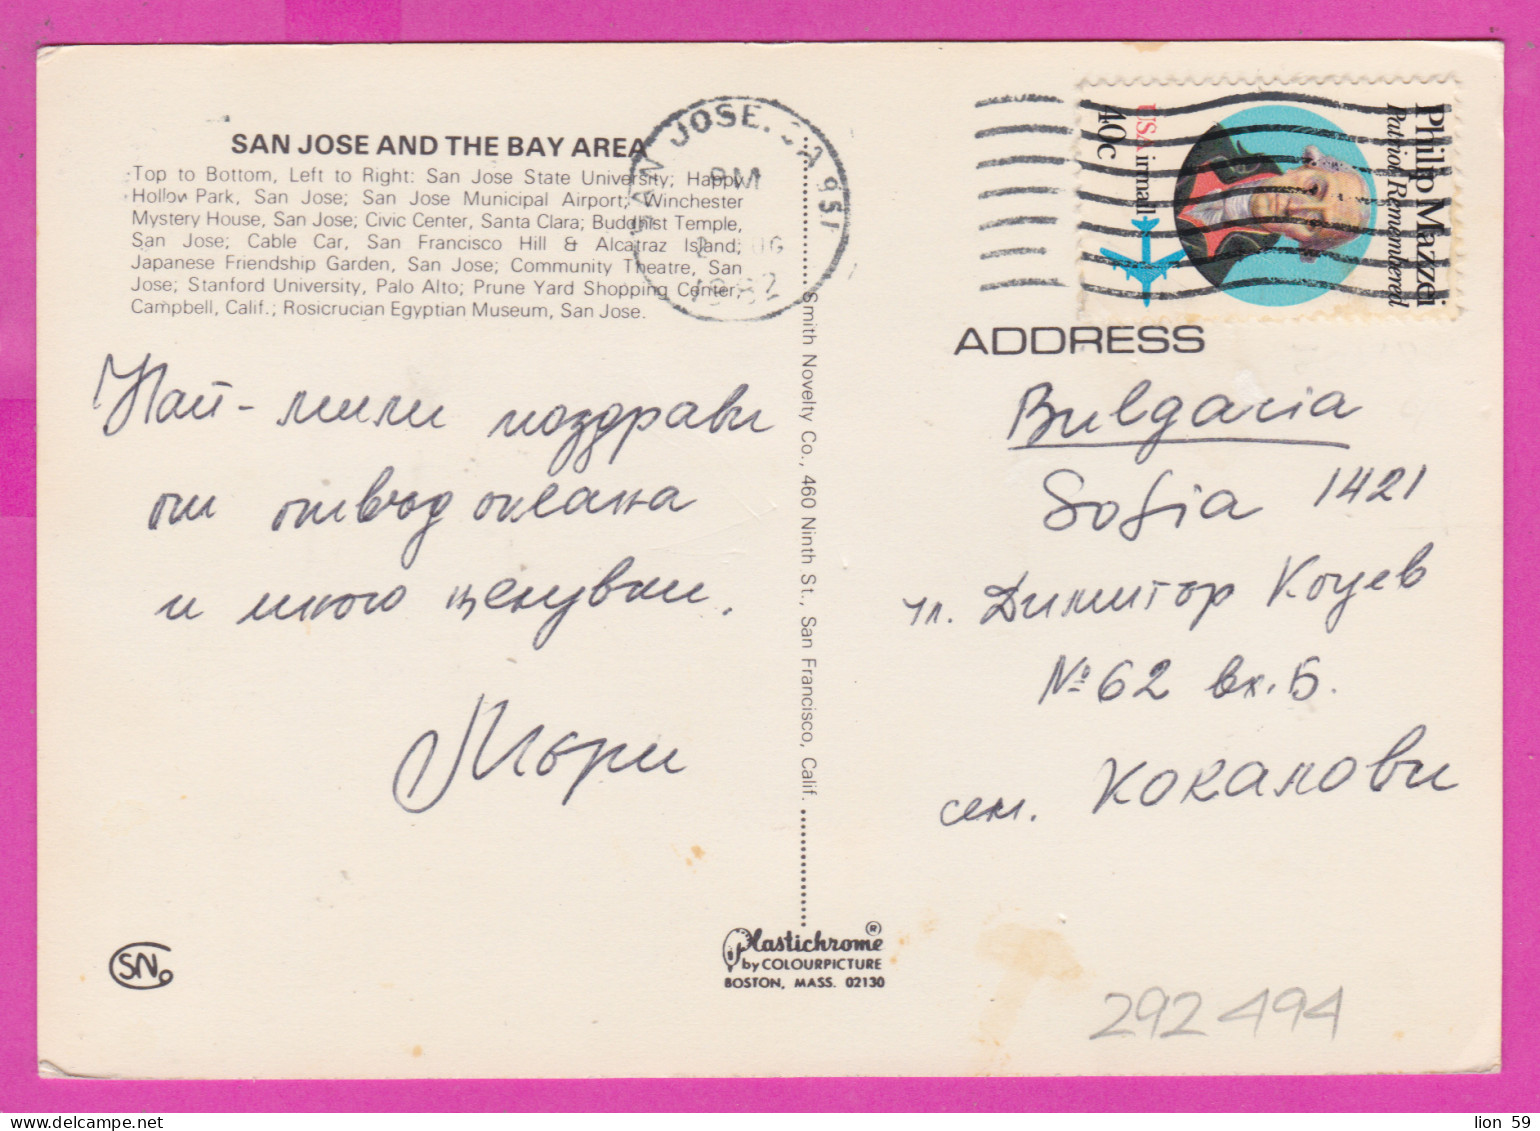 SAN JOSE AND THE BAY AREA
Top to Bottom, Left to Right: San Jose State University; Happy
Hollow Park, San Jose; San Jose Municipal Airport; Winchester
Mystery House, San Jose; Civic Center, Santa Clara; Buddhist Temple,
San Jose; Cable Car, San Francisco Hill & Alcatraz Island;
Japanese Friendship Garden, San Jose; Community Theatre, San
Jose; Stanford University, Palo Alto; Prune Yard Shopping Center,
Campbell, Calif.; Rosicrucian Egyptian Museum, San Jose.
SAN JOSE, CA 951
PM
1982
Philip Mazzei
Patriot Remembered
USA Airmail
40c
Най-мили поздрави
от отвъд океана
и много целувки.
Мери
Smith Novelty Co., 460 Ninth St., San Francisco, Calif.
ADDRESS
Bulgaria
Sofia 1421
ул. Димитър Коцев
№ 62 вх. Б.
сем. Кокалови
SN
Plastichrome ®
by COLOURPICTURE
BOSTON, MASS. 02130
292494
lion 59